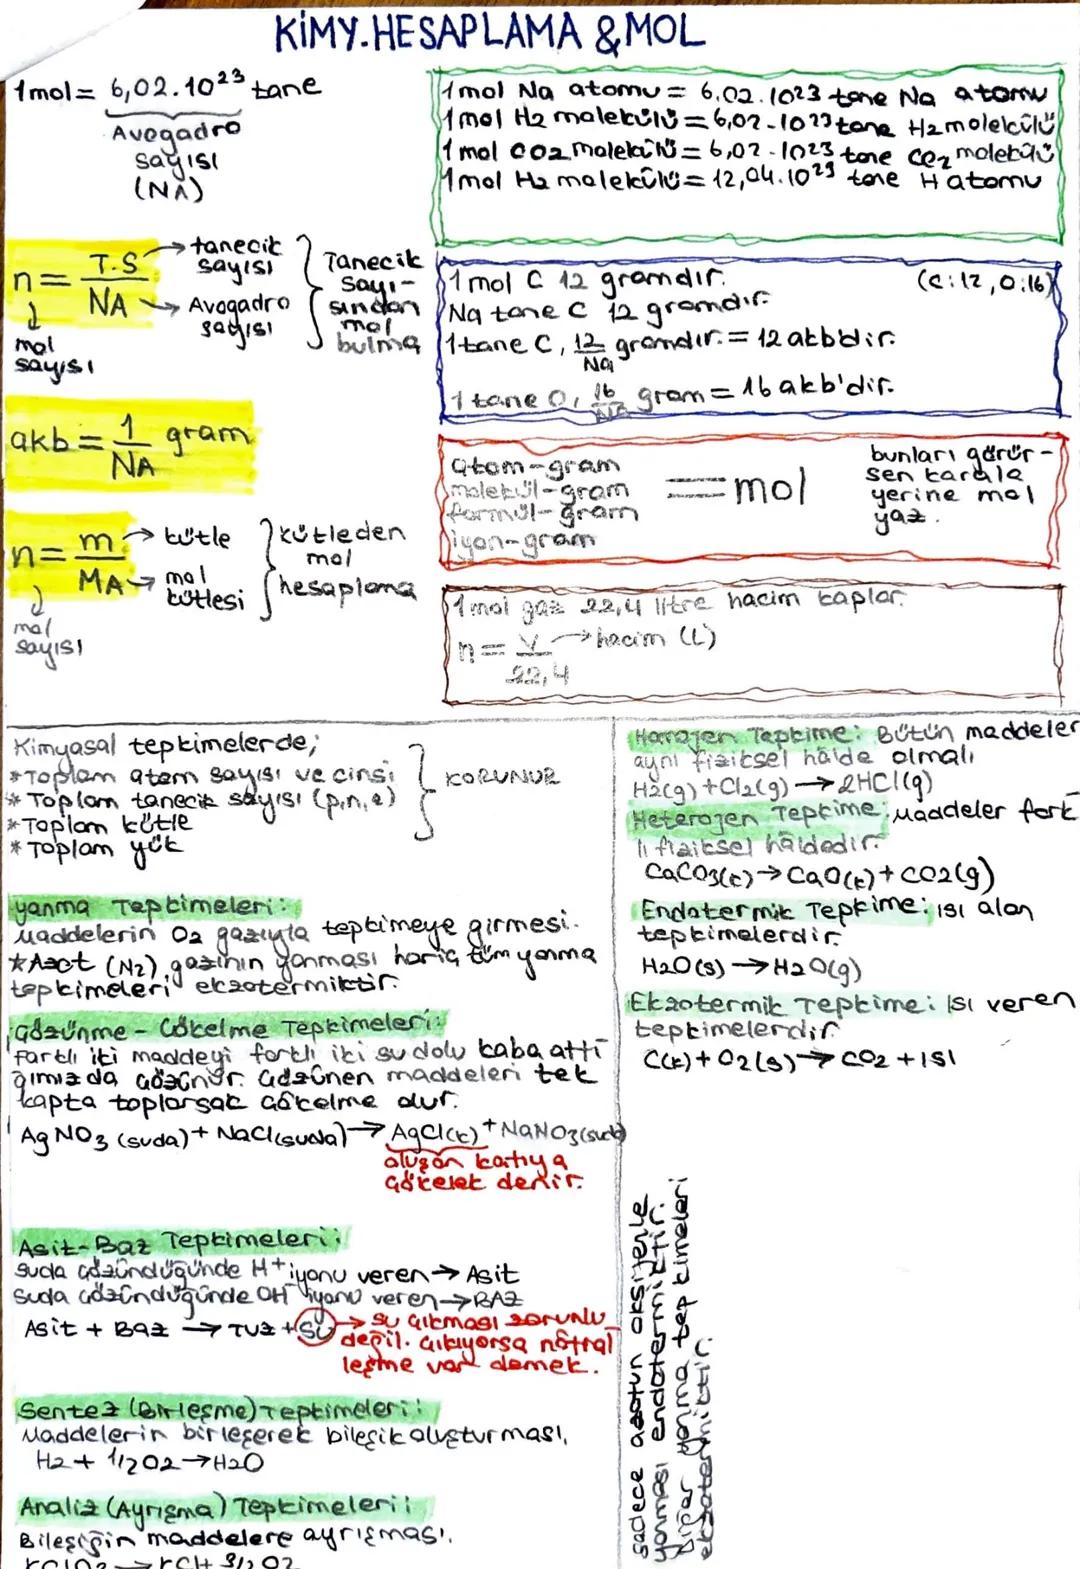 KİMY.HESAPLAMA & MOL
1mol = 6,02.10²³ tane
Avogadro
sayısı
(NA)
1mol Na atomu = 6,02.10²³ tane Na atomu
1mol H2 molekülü = 6,02.10²³ tane H2 molekülü
1mol CO2 molekülü = 6,02.10²³ tane CO2 molekülü
1mol H2 molekülü = 12,04.10²³ tane H atomu
n = T.S / NA
→ tanecik sayısı
→ Avogadro sayısı
mol sayısı
Tanecik
sayı-
sından
mol
bulma
1 mol C 12 gramdır. (C:12, O:16)
Na tane C 12 gramdır.
1 tane C, 12/Na gramdır. = 12 akb'dir.
1 tane O, 16/NA gram = 16 akb'dir.
akb = 1/NA gram
atom-gram
molekül-gram
formül-gram
iyon-gram
= mol
bunları görür-
sen karala
yerine mol
yaz.
n = m / MA
→ kütle
→ mol kütlesi
mol sayısı
kütleden
mol
hesaplama
1 mol gaz 22,4 litre hacim kaplar.
n = V / 22,4 → hacim (L)
Kimyasal tepkimelerde;
*Toplam atom sayısı ve cinsi
* Toplam tanecik sayısı (p,n,e)
*Toplam kütle
* Toplam yük
KORUNUR
Yanma Tepkimeleri:
Maddelerin O2 gazıyla tepkimeye girmesi.
*Azot (N2) gazının yanması hariç tüm yanma
tepkimeleri ekzotermiktir.
Çözünme - Çökelme Tepkimeleri:
Farklı iki maddeyi farklı iki su dolu kaba attı
ğımızda çözünür. Çözünen maddeleri tek
kapta toplarsak çökelme olur.
AgNO3 (suda) + NaCl (suda) → AgCl(k) + NaNO3 (suda)
oluşan katıya
çökelek denir.
Asit-Baz Tepkimeleri:
Suda çözündüğünde H+ iyonu veren → Asit
Suda çözündüğünde OH- iyonu veren → BAZ
Asit + Baz → Tuz + Su
→ Su çıkması zorunlu
değil. Çıkıyorsa nötral
leşme var demek.
Sentez (Birleşme) Tepkimeleri:
Maddelerin birleşerek bileşik oluşturması.
H2 + 1/2O2 → H2O
Analiz (Ayrışma) Tepkimeleri:
Bileşiğin maddelere ayrışması.
KClO3 → KCl + 3/2 O2
Homojen Tepkime: Bütün maddeler
aynı fiziksel hâlde olmalı
H2(g) + Cl2(g) → 2HCl(g)
Heterojen Tepkime: Maddeler fark
lı fiziksel hâldedir.
CaCO3(k) → CaO(k) + CO2(g)
Endotermik Tepkime: ısı alan
tepkimelerdir.
H2O(s) → H2O(g)
Ekzotermik Tepkime: Isı veren
tepkimelerdir.
C(k) + O2(s) → CO2 + ISI
Sadece azotun oksijenle
yanması endotermiktir.
Diğer yanma tepkimeleri
ekzotermiktir.